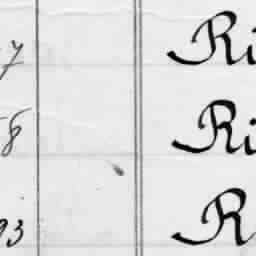 7 Ri
8 Ri
93 R